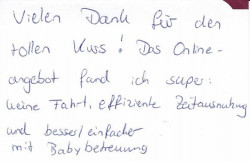 Vielen Dank für den
tollen Kurs! Das Online-
angebot fand ich super:
keine Fahrt, effiziente Zeitausnutzung
und besser/einfacher
mit Babybetreuung